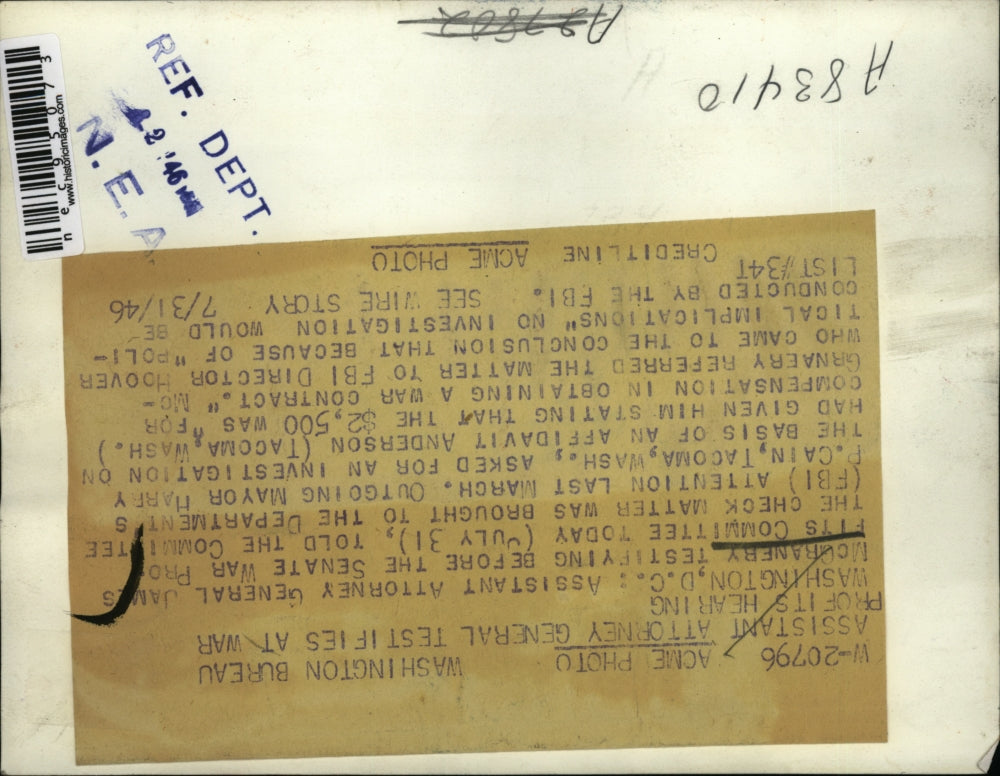 A27802
A83410
REF. DEPT.
2 '46
N. E. A.
www.historicimages.com
W-20796 ACME PHOTO WASHINGTON BUREAU
ASSISTANT ATTORNEY GENERAL TESTIFIES AT WAR
PROFITS HEARING
WASHINGTON,D.C.: ASSISTANT ATTORNEY GENERAL JAMES
MCGRANERY TESTIFYING BEFORE THE SENATE WAR PRO-
FITS COMMITTEE TODAY (JULY 31), TOLD THE COMMITTEE
THE CHECK MATTER WAS BROUGHT TO THE DEPARTMENT'S
(FBI) ATTENTION LAST MARCH. OUTGOING MAYOR HARRY
P.CAIN,TACOMA,WASH., ASKED FOR AN INVESTIGATION ON
THE BASIS OF AN AFFIDAVIT ANDERSON (TACOMA,WASH.)
HAD GIVEN HIM STATING THAT THE $2,500 WAS "FOR
COMPENSATION IN OBTAINING A WAR CONTRACT." MC-
GRNAERY REFERRED THE MATTER TO FBI DIRECTOR HOOVER
WHO CAME TO THE CONCLUSION THAT BECAUSE OF "POLI-
TICAL IMPLICATIONS" NO INVESTIGATION WOULD BE
CONDUCTED BY THE FBI. SEE WIRE STORY 7/31/46
LIST#34T
CREDITLINE ACME PHOTO